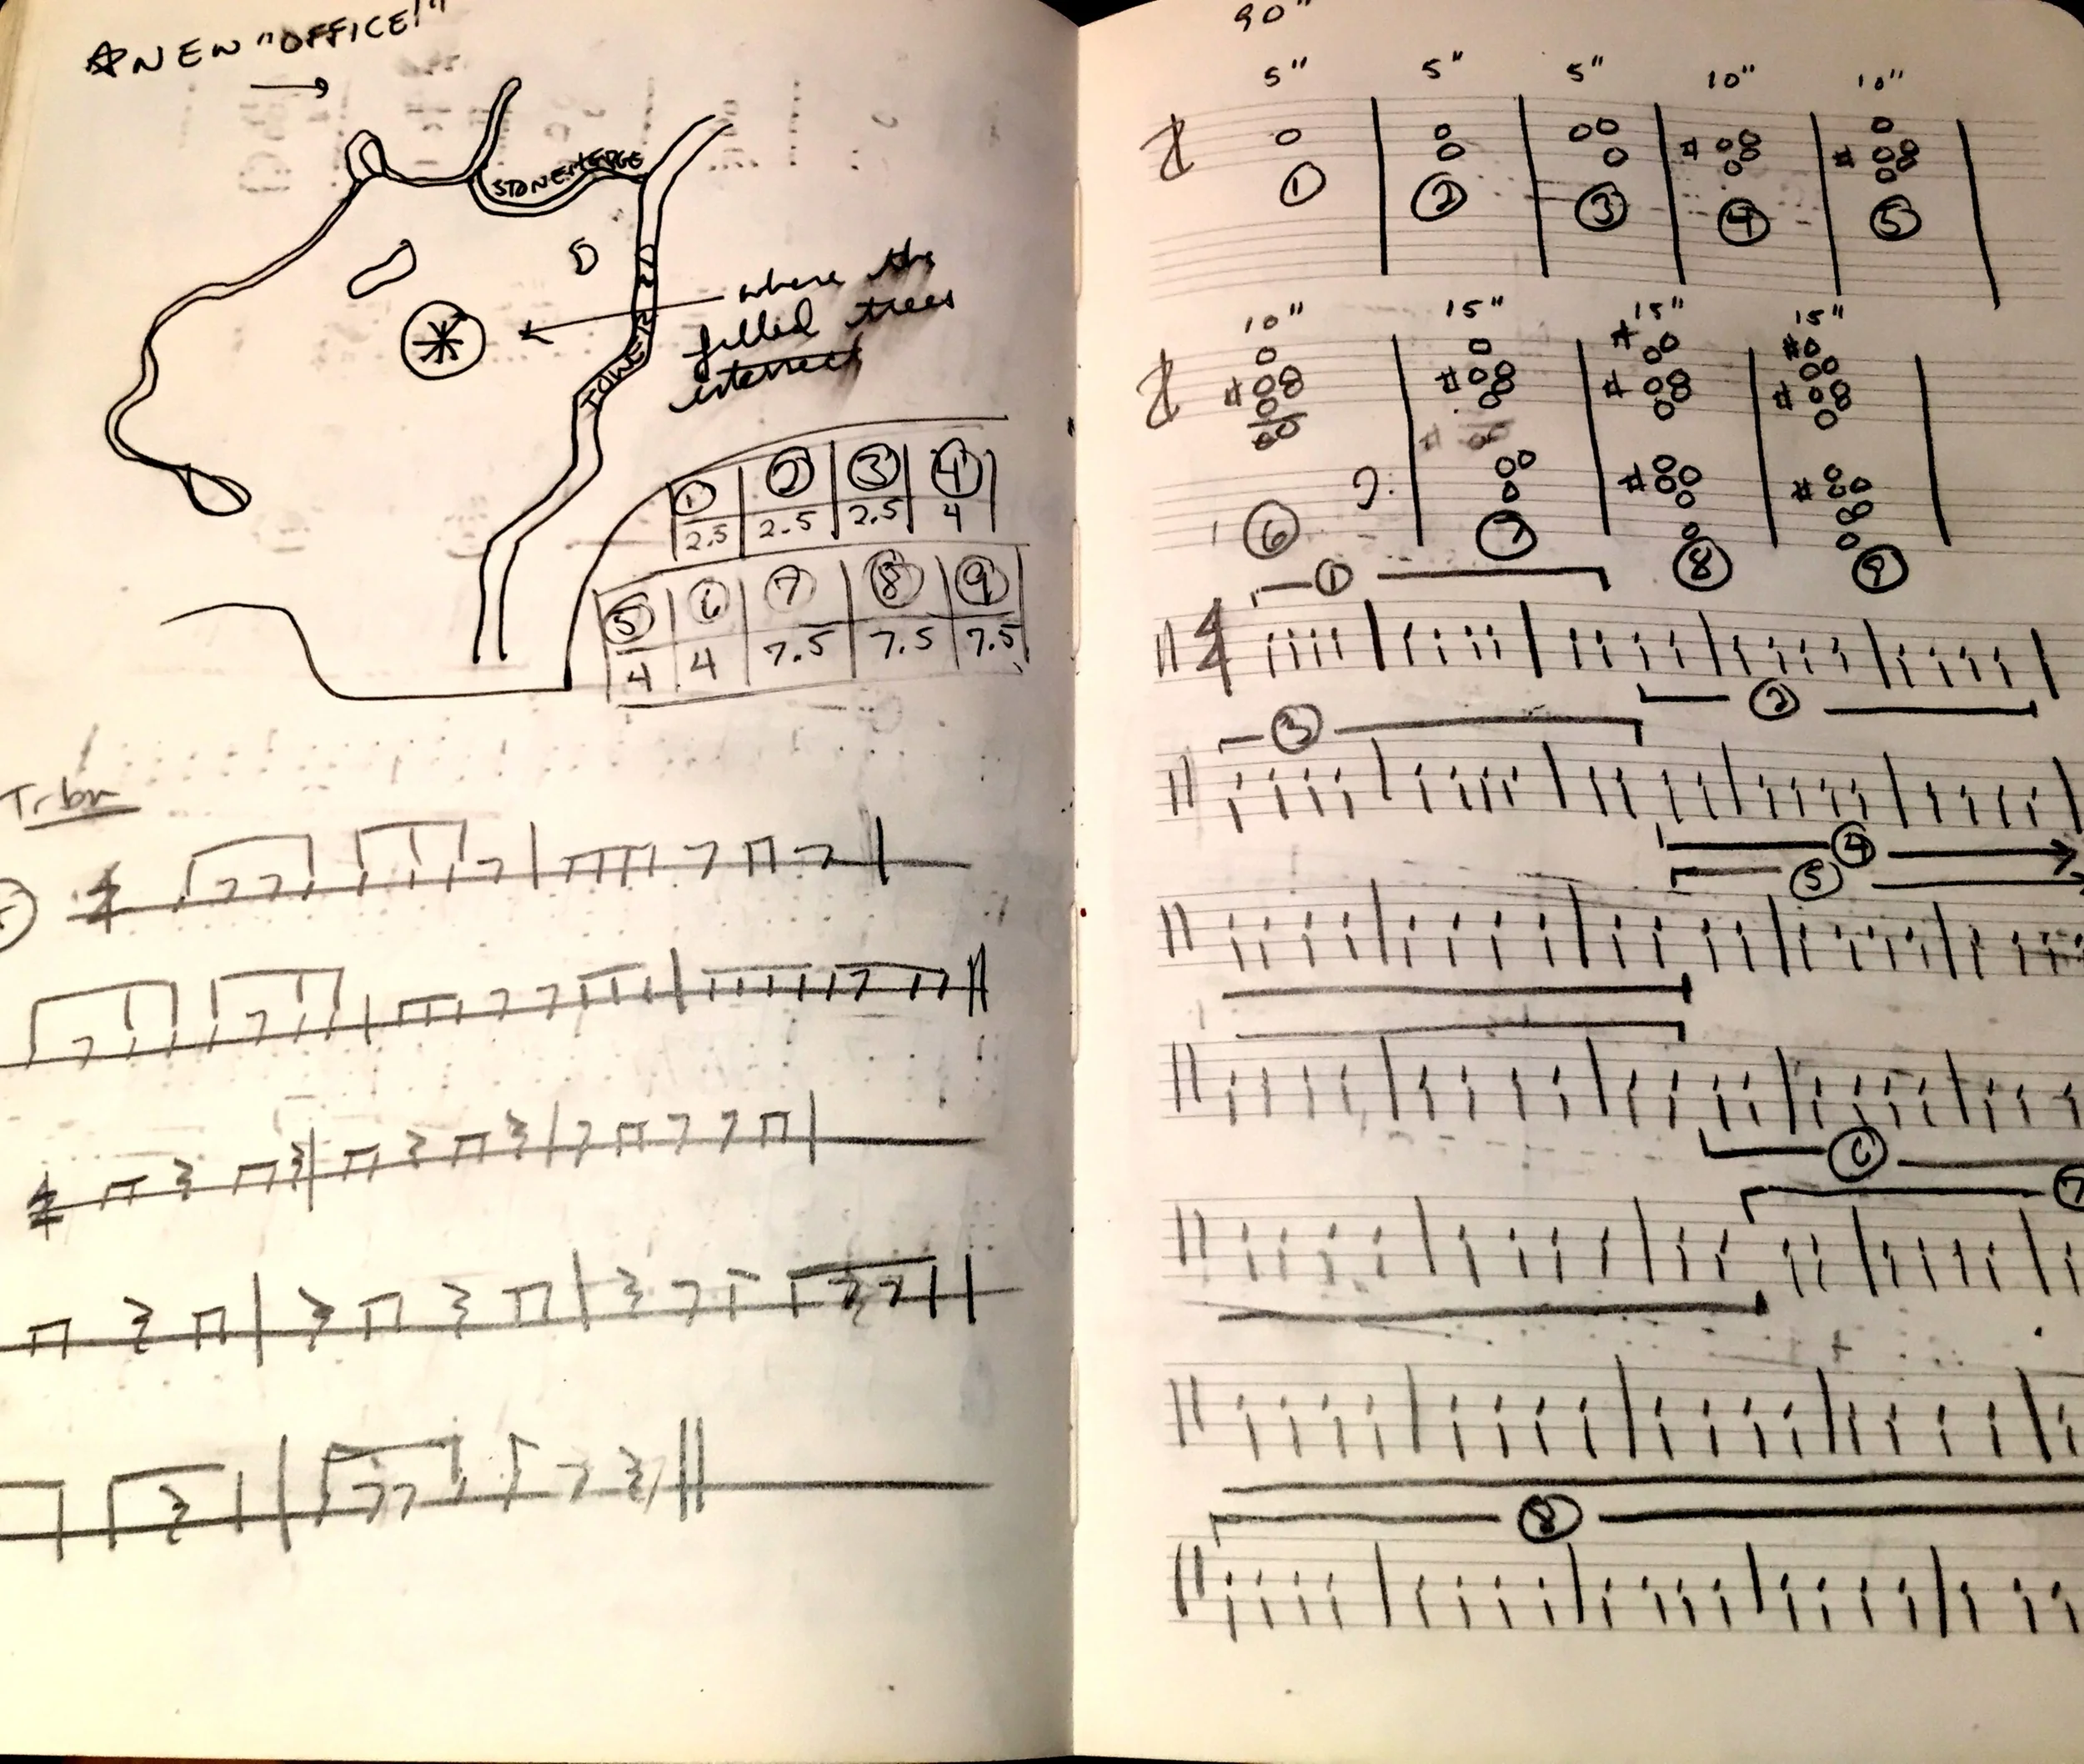 ☆NEW "OFFICE!"
→
STONEHEDGE
TOWER
where the
felled trees
intersect
① ② ③ ④
2.5 2.5 2.5 4
⑤ ⑥ ⑦ ⑧ ⑨
4 4 7.5 7.5 7.5
Trbn
90"
5" 5" 5" 10" 10"
① ② ③ ④ ⑤
10" 15" 15" 15"
⑥ ⑦ ⑧ ⑨
①
4/4
②
③
④
⑤
⑥
⑦
⑧